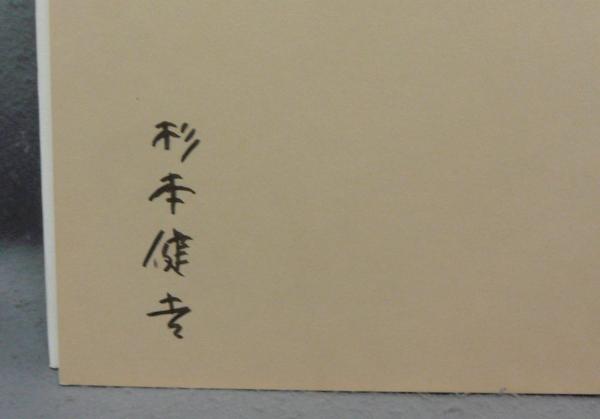 杉本健吉